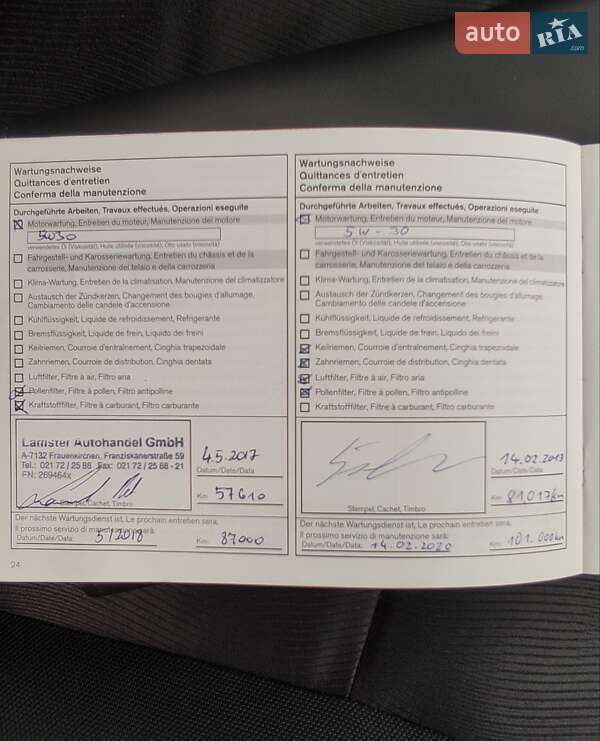 auto RIA .com
Wartungsnachweise
Quittances d'entretien
Conferma della manutenzione
Durchgeführte Arbeiten, Travaux effectués, Operazioni eseguite
Motorwartung, Entretien du moteur, Manutenzione del motore
5W30
verwendetes Öl (Viskosität), Huile utilisée (viscosité), Olio usato (viscosità)
Fahrgestell- und Karosseriewartung, Entretien du châssis et de la
carrosserie, Manutenzione del telaio e della carrozzeria
Klima-Wartung, Entretien de la climatisation, Manutenzione del climatizzatore
Austausch der Zündkerzen, Changement des bougies d'allumage,
Cambiamento delle candele d'accensione
Kühlflüssigkeit, Liquide de refroidissement, Refrigerante
Bremsflüssigkeit, Liquide de frein, Liquido dei freini
Keilriemen, Courroie d'entraînement, Cinghia trapezoidale
Zahnriemen, Courroie de distribution, Cinghia dentata
Luftfilter, Filtre à air, Filtro aria
Pollenfilter, Filtre à pollen, Filtro antipolline
Kraftstofffilter, Filtre à carburant, Filtro carburante
Lamster Autohandel GmbH
A-7132 Frauenkirchen, Franziskanerstraße 59
Tel.: 021 72 / 25 88 Fax: 021 72 / 25 88 - 21
FN: 269464x
Stempel, Cachet, Timbro
4.5.2017
Datum/Date/Data
Km: 57610
Der nächste Wartungsdienst ist, Le prochain entretien sera,
Il prossimo servizio di manutenzione sarà:
Datum/Date/Data: 5/2018 Km: 87000
24
Wartungsnachweise
Quittances d'entretien
Conferma della manutenzione
Durchgeführte Arbeiten, Travaux effectués, Operazioni eseguite
Motorwartung, Entretien du moteur, Manutenzione del motore
5W-30
verwendetes Öl (Viskosität), Huile utilisée (viscosité), Olio usato (viscosità)
Fahrgestell- und Karosseriewartung, Entretien du châssis et de la
carrosserie, Manutenzione del telaio e della carrozzeria
Klima-Wartung, Entretien de la climatisation, Manutenzione del climatizzatore
Austausch der Zündkerzen, Changement des bougies d'allumage,
Cambiamento delle candele d'accensione
Kühlflüssigkeit, Liquide de refroidissement, Refrigerante
Bremsflüssigkeit, Liquide de frein, Liquido dei freini
Keilriemen, Courroie d'entraînement, Cinghia trapezoidale
Zahnriemen, Courroie de distribution, Cinghia dentata
Luftfilter, Filtre à air, Filtro aria
Pollenfilter, Filtre à pollen, Filtro antipolline
Kraftstofffilter, Filtre à carburant, Filtro carburante
Stempel, Cachet, Timbro
14.02.2019
Datum/Date/Data
Km: 81017km
Der nächste Wartungsdienst ist, Le prochain entretien sera,
Il prossimo servizio di manutenzione sarà:
Datum/Date/Data: 14.02.2020 Km: 101.000km